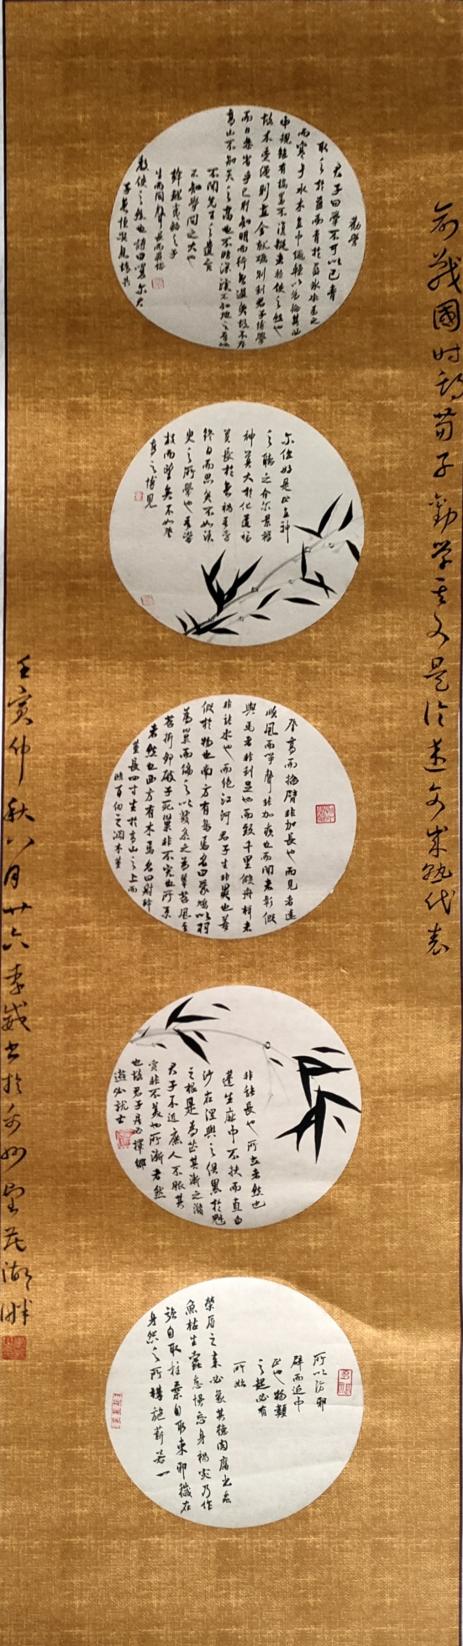 前戰國时期荀子勸学其文是论述文成熟代表
勸學
君子曰學不可以已青
取之於藍而青於藍冰水為之
而寒于水木直中繩輮以為輪其曲
中規雖有槁暴不復挺者輮使之然也
故木受繩則直金就礪則利君子博學
而日參省乎己則知明而行無過矣故不登
高山不知天之高也不臨深溪不知地之厚也
不聞先王之遺言
不知學問之大也
幹越夷貉之子
生而同聲長而異俗
教使之然也詩曰嗟尔君
子無恆安息靖共
尔位好是正直神
之聽之介尔景福
神莫大於化道福
莫長於無禍吾嘗
終日而思矣不如須
臾之所學也吾嘗
跂而望矣不如登
高之博見
登高而招臂非加長也而見者遠
順風而呼聲非加疾也而聞者彰假
輿馬者非利足也而致千里假舟楫者
非能水也而絕江河君子生非異也善
假於物也南方有鳥焉名曰蒙鳩以羽
為巢而編之以髮系之葦苕風至
苕折卵破子死巢非不完也所系
者然也西方有木焉名曰射幹
莖長四寸生於高山之上而
臨百仞之淵木莖
非能長也所立者然也
蓬生麻中不扶而直白
沙在涅與之俱黑蘭槐
之根是為芷其漸之滫
君子不近庶人不服其
質非不美也所漸者然
也故君子居必擇鄉
遊必就士
所以防邪
辟而近中
正也物類
之起必有
所始
榮辱之來必象其德肉腐出蟲
魚枯生蠹怠慢忘身禍災乃作
強自取柱柔自取束邪穢在
身怨之所構施薪若一
壬寅仲秋八月廿六李巍书於望花湖畔